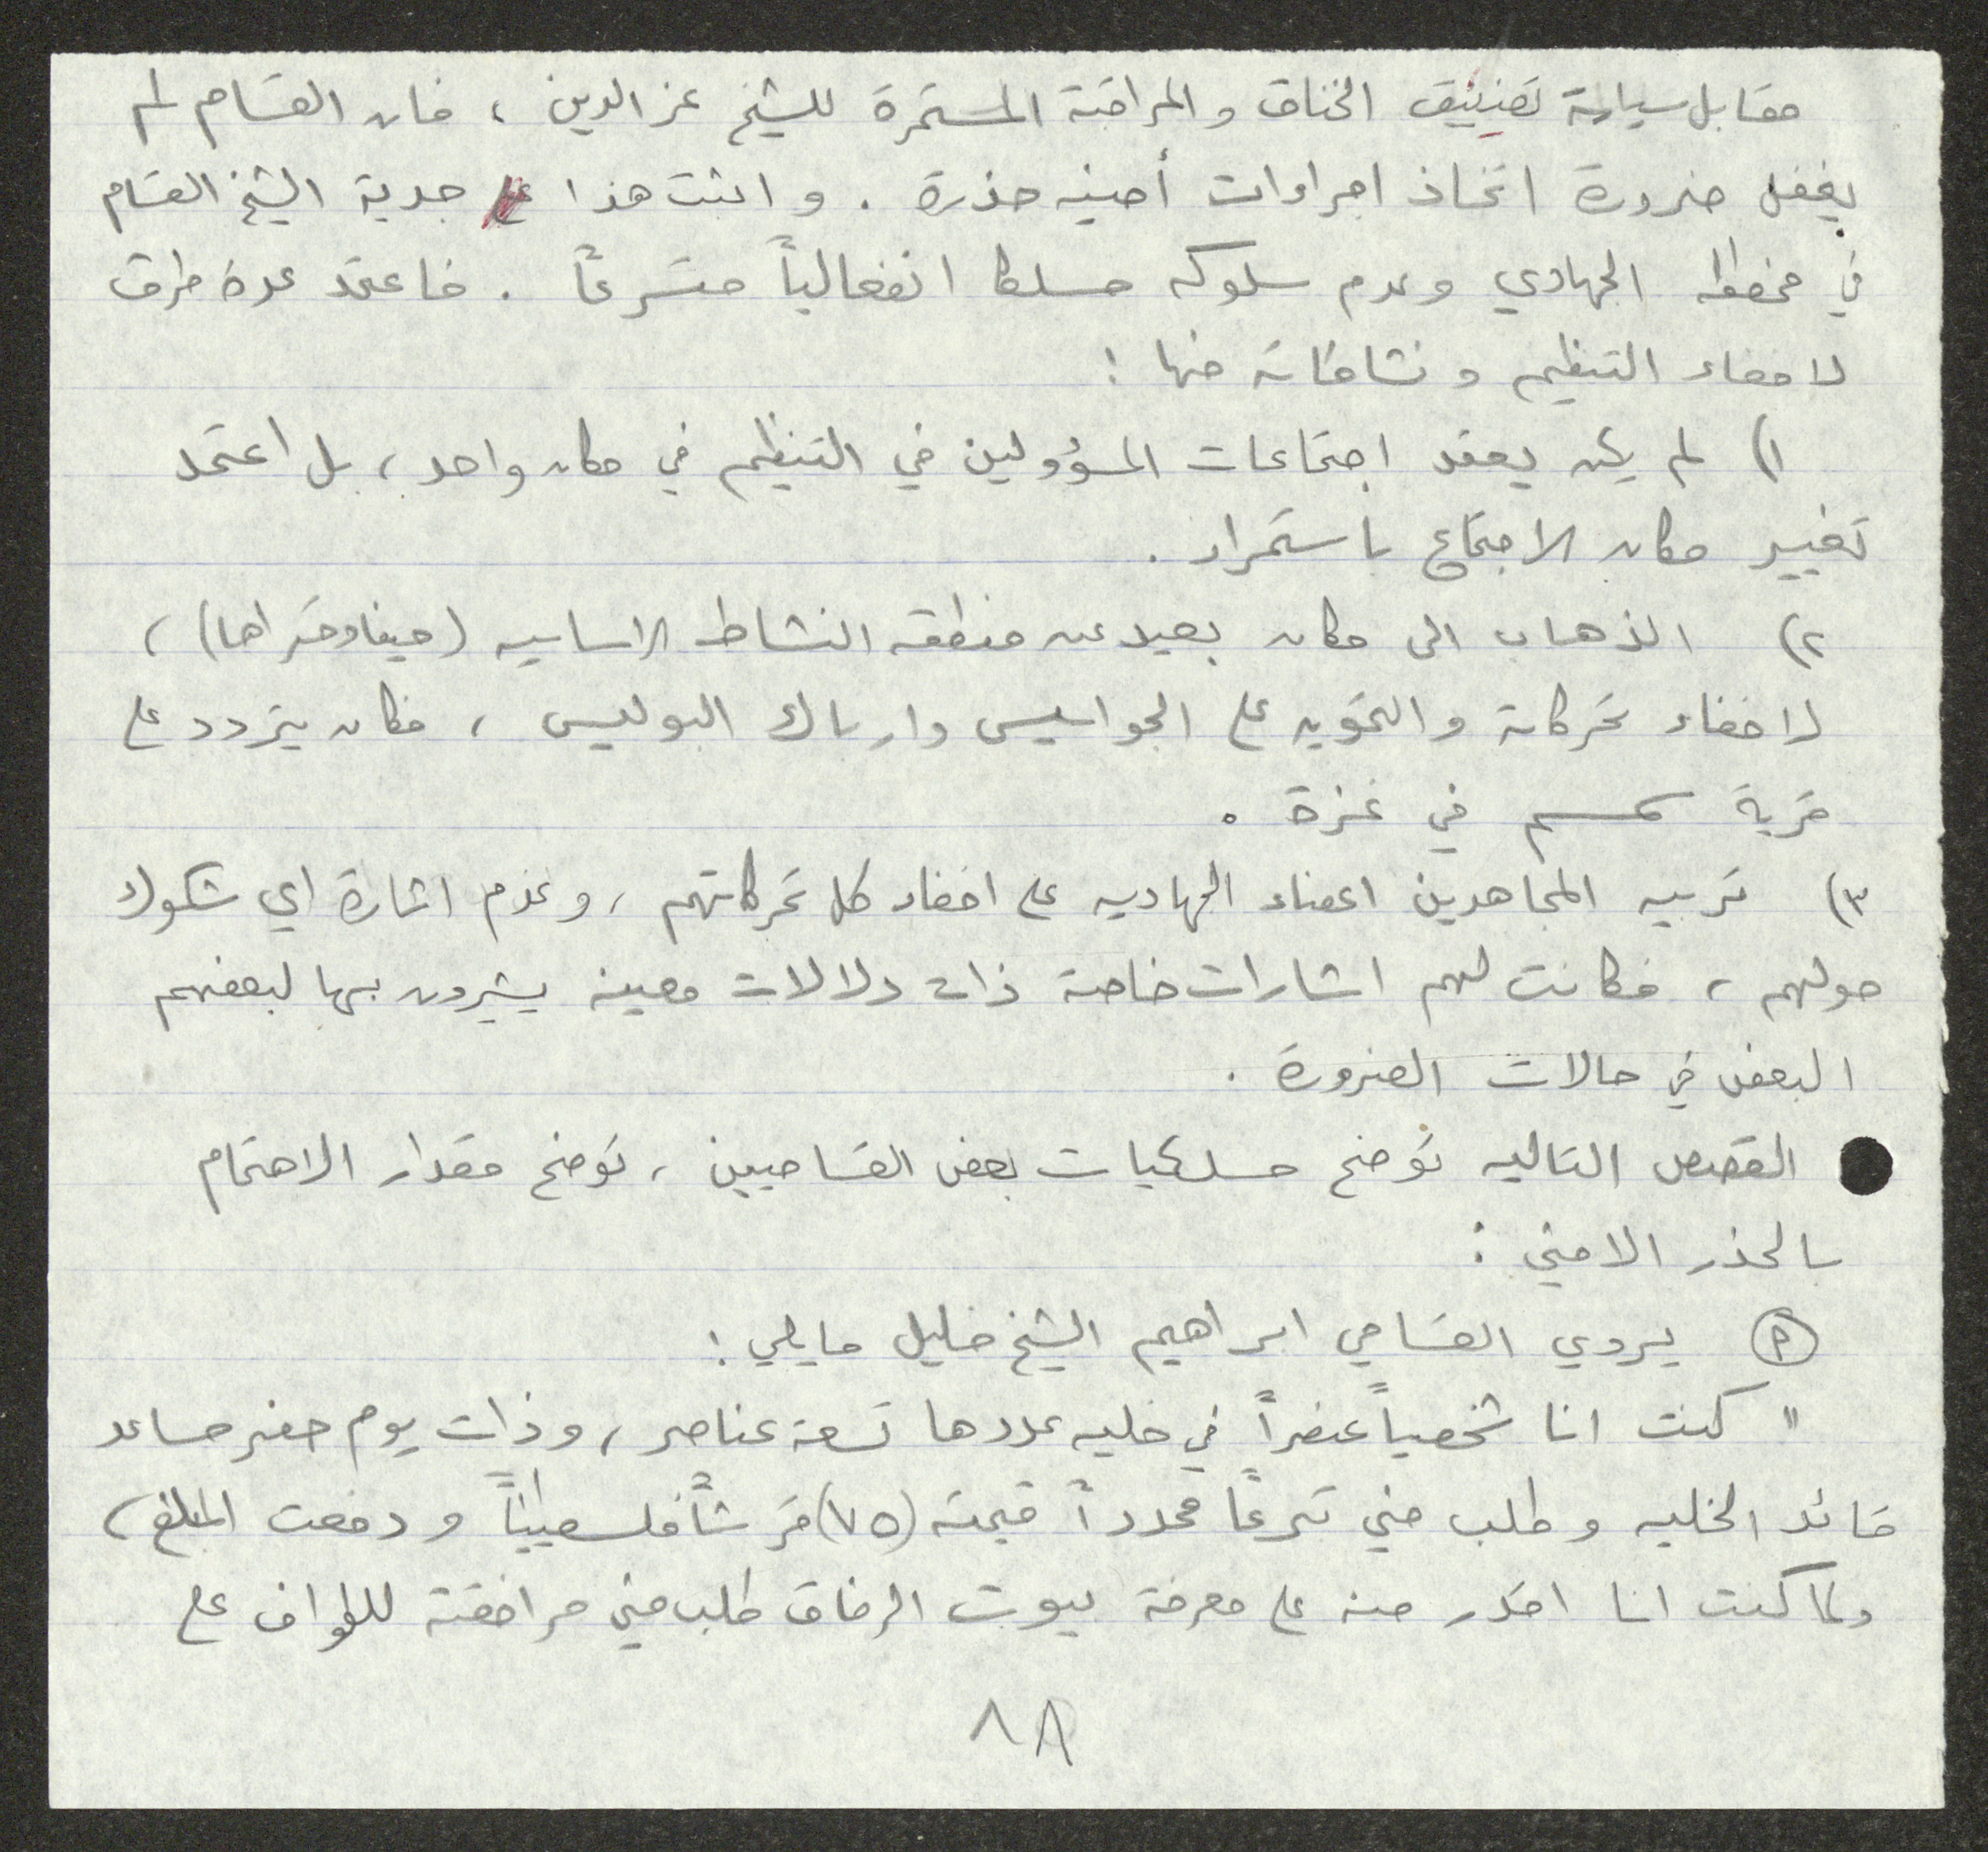 مقابل سياسة تضييق الخناق والمراقبة المستمرة للشيخ عز الدين ، فان القسام لم
يغفل ضرورة اتخاذ اجراءات أمنيه حذرة . واثبت هذا جدية الشيخ القسام
في مخططه الجهادي وعدم سلوكه مسلكا انفعالياً متسرعاً . فاعتمد عدة طرق
لاخفاء التنظيم ونشاطاته منها :
١) لم يكن يعقد اجتماعات المسؤولين في التنظيم في مكان واحد ، بل اعتمد
تغيير مكان الاجتماع باستمرار .
٢) الذهاب الى مكان بعيد عن منطقه النشاط الاساسيه (حيفا وقراها) ،
لاخفاء تحركاته والتمويه على الجواسيس وارباك البوليس ، فكان يتردد على
قرية سمسم في غزة .
٣) تربيه المجاهدين اعضاء الجهاديه على اخفاء كل تحركاتهم ، وعدم اثارة اي شكوك
حولهم ، فكانت لهم اشارات خاصة ذات دلالات معينه يشيرون بها لبعضهم
البعض في حالات الضرورة .
● القصص التاليه توضح مسلكيات بعض القساميين ، توضح مقدار الاهتمام
بالحذر الامني :
(P) يروي القسامي ابراهيم الشيخ خليل مايلي :
" كنت انا شخصياً عنصراً في خليه عددها تسعة عناصر ، وذات يوم حضر مساعد
قائد الخليه وطلب مني تبرعاً محدداً قيمته (٧٥) قرشاً فلسطينياً ودفعت المبلغ ،
ولما كنت انا اقدر منه على معرفة بيوت الرفاق طلب مني مرافقته للطواف على
٨٨